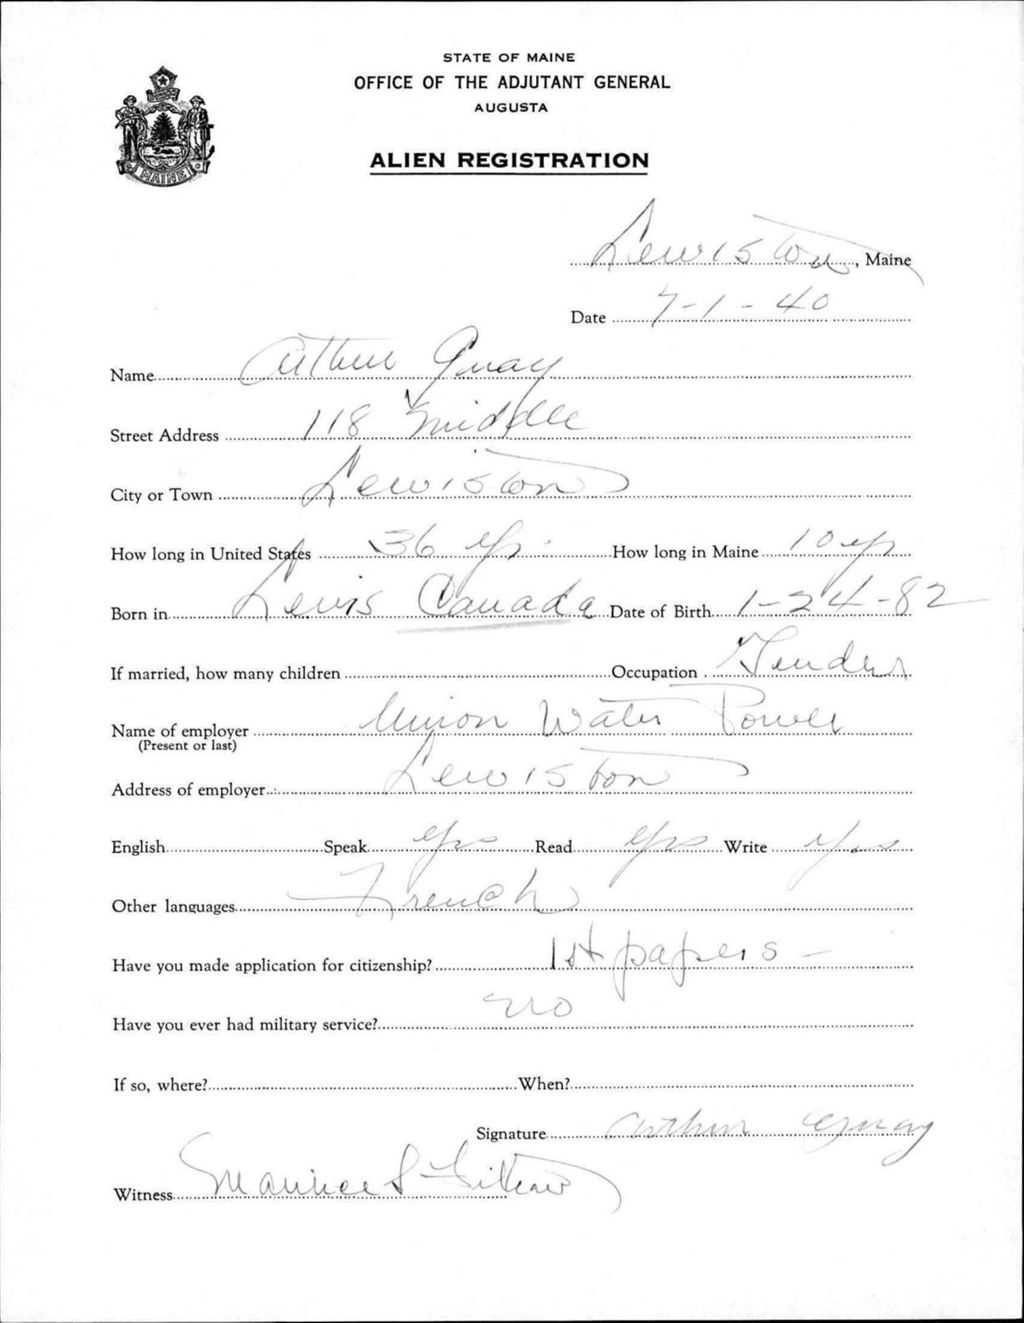 STATE OF MAINE
OFFICE OF THE ADJUTANT GENERAL
AUGUSTA
MAINE
ALIEN REGISTRATION
Lewiston, Maine
Date 7-1-40
Name Arthur Guay
Street Address 118 Middle
City or Town Lewiston
How long in United States 36 yrs How long in Maine 10 yrs
Born in Levis Canada Date of Birth 1-24-82
If married, how many children Occupation Tender
Name of employer Union Water Power
(Present or last)
Address of employer Lewiston
English Speak yes Read yes Write yes
Other languages French
Have you made application for citizenship? 1st papers -
Have you ever had military service? no
If so, where? When?
Signature Arthur Guay
Witness Maurice S